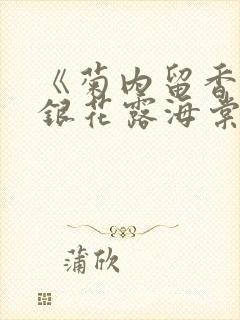 《菊内留香
銀花露海棠
蒲欣